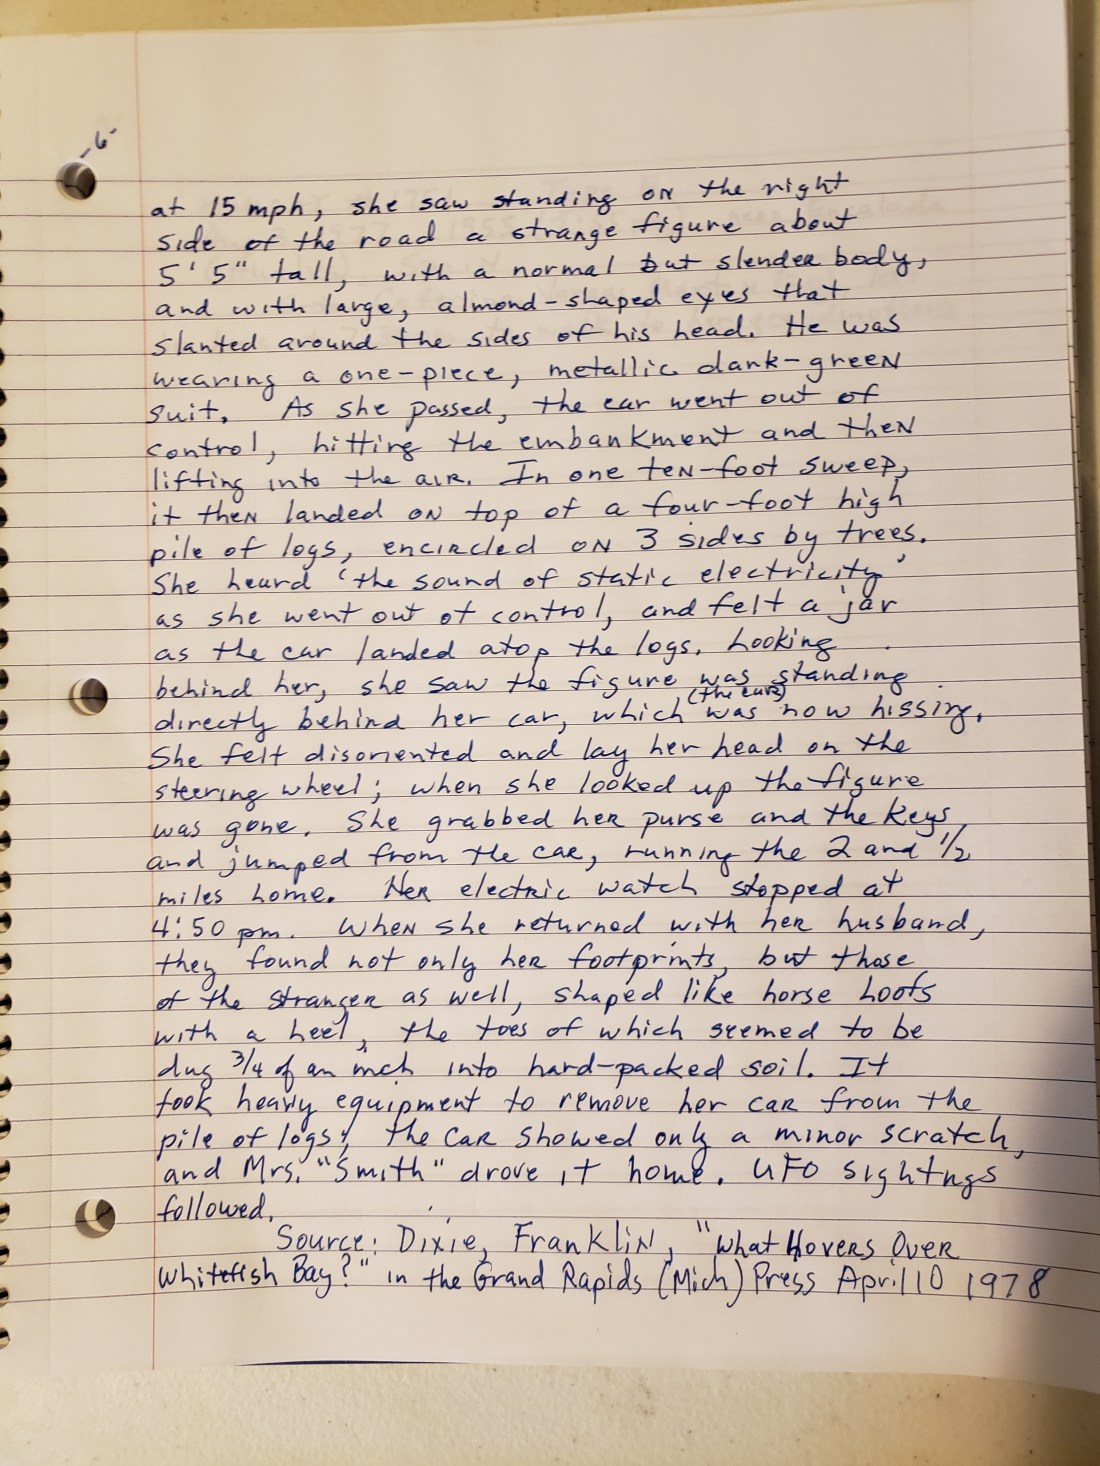 -6-
at 15 mph, she saw standing on the right
side of the road a strange figure about
5' 5" tall, with a normal but slender body,
and with large, almond-shaped eyes that
slanted around the sides of his head. He was
wearing a one-piece, metallic dark-green
suit. As she passed, the car went out of
control, hitting the embankment and then
lifting into the air. In one ten-foot sweep,
it then landed on top of a four-foot high
pile of logs, encircled on 3 sides by trees.
She heard 'the sound of static electricity'
as she went out of control, and felt a jar
as the car landed atop the logs. Looking
behind her, she saw the figure was standing
(the car)
directly behind her car, which was now hissing.
She felt disoriented and lay her head on the
steering wheel; when she looked up the figure
was gone. She grabbed her purse and the keys,
and jumped from the car, running the 2 and 1/2
miles home. Her electric watch stopped at
4:50 pm. When she returned with her husband,
they found not only her footprints, but those
of the stranger as well, shaped like horse hoofs
with a heel, the toes of which seemed to be
dug 3/4 of an inch into hard-packed soil. It
took heavy equipment to remove her car from the
pile of logs; the car showed only a minor scratch,
and Mrs. "Smith" drove it home. UFO sightngs
followed.
Source: Dixie, Franklin, "What Hovers Over
Whitefish Bay?" in the Grand Rapids (Mich) Press April 10 1978